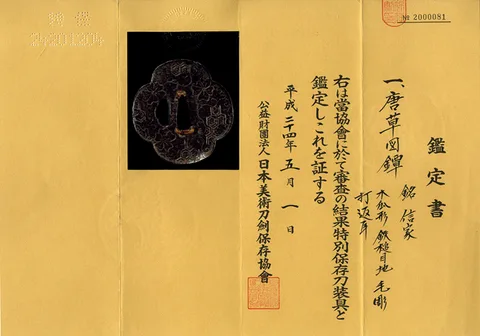 № 2000081
鑑定書
一、唐草図鐔 銘 信家
木瓜形 鉄槌目地 毛彫
打返耳
右は當協會に於て審査の結果特別保存刀装具と
鑑定しこれを証する
平成二十四年五月一日
公益財團法人日本美術刀劍保存協會